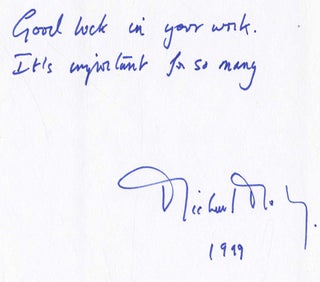 Good luck in your work.
It's important for so many
Michael
1999